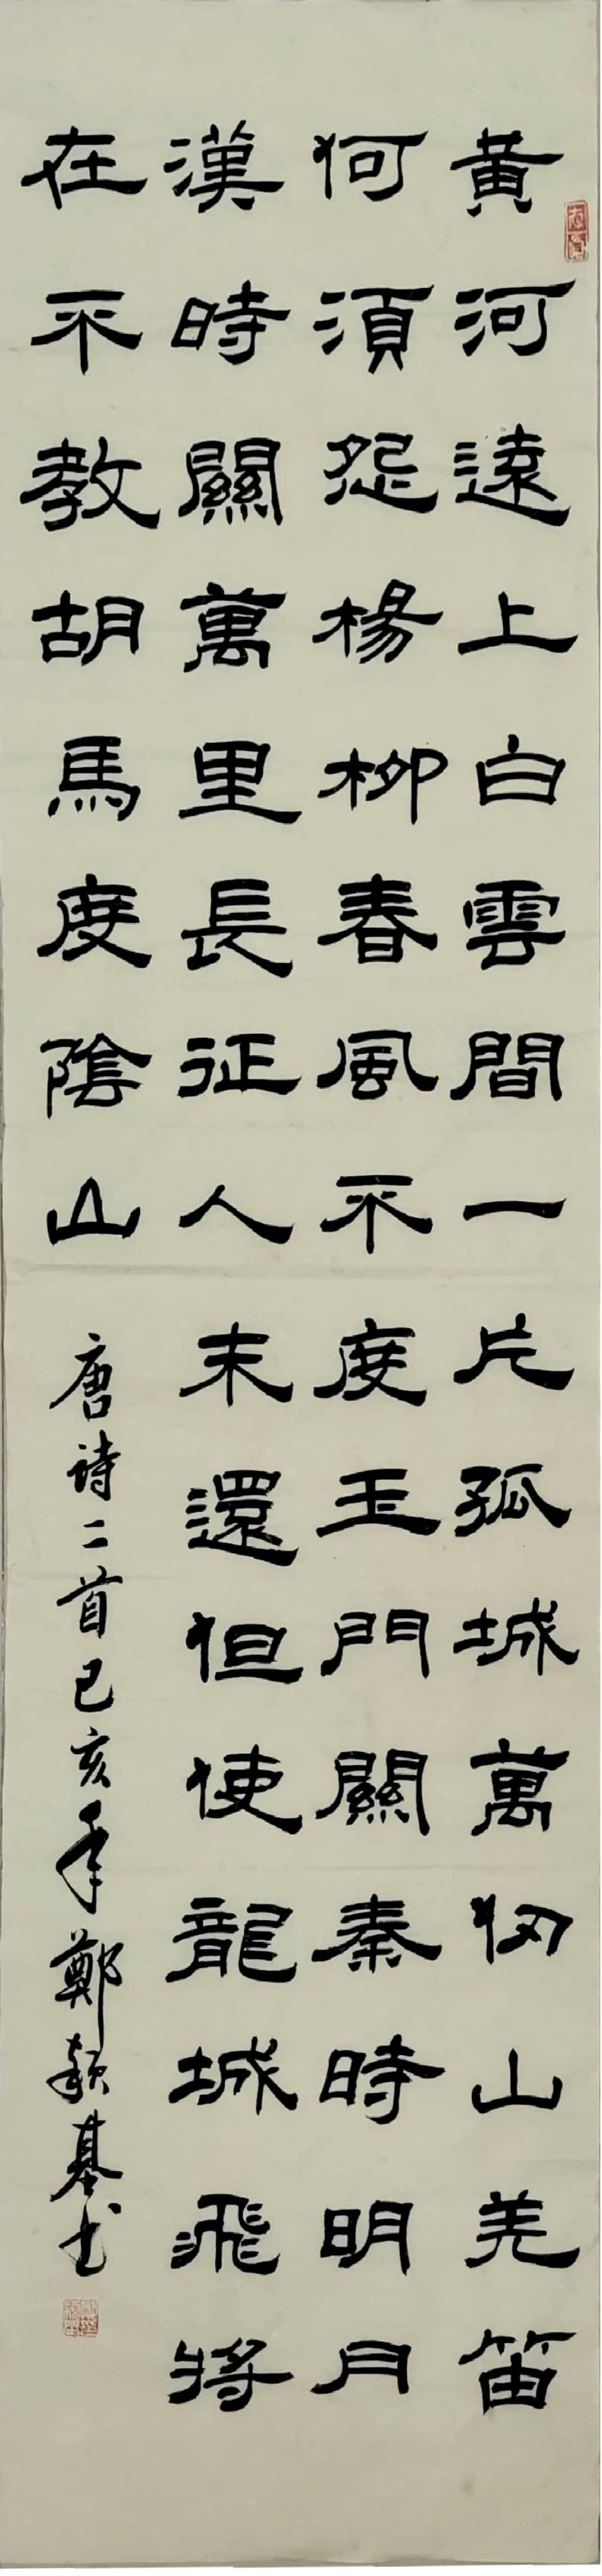 黄河遠上白雲間一片孤城萬仞山羌笛
何須怨楊柳春風不度玉門關秦時明月
漢時關萬里長征人未還但使龍城飛將
在不教胡馬度陰山
唐诗二首己亥年鄭基书